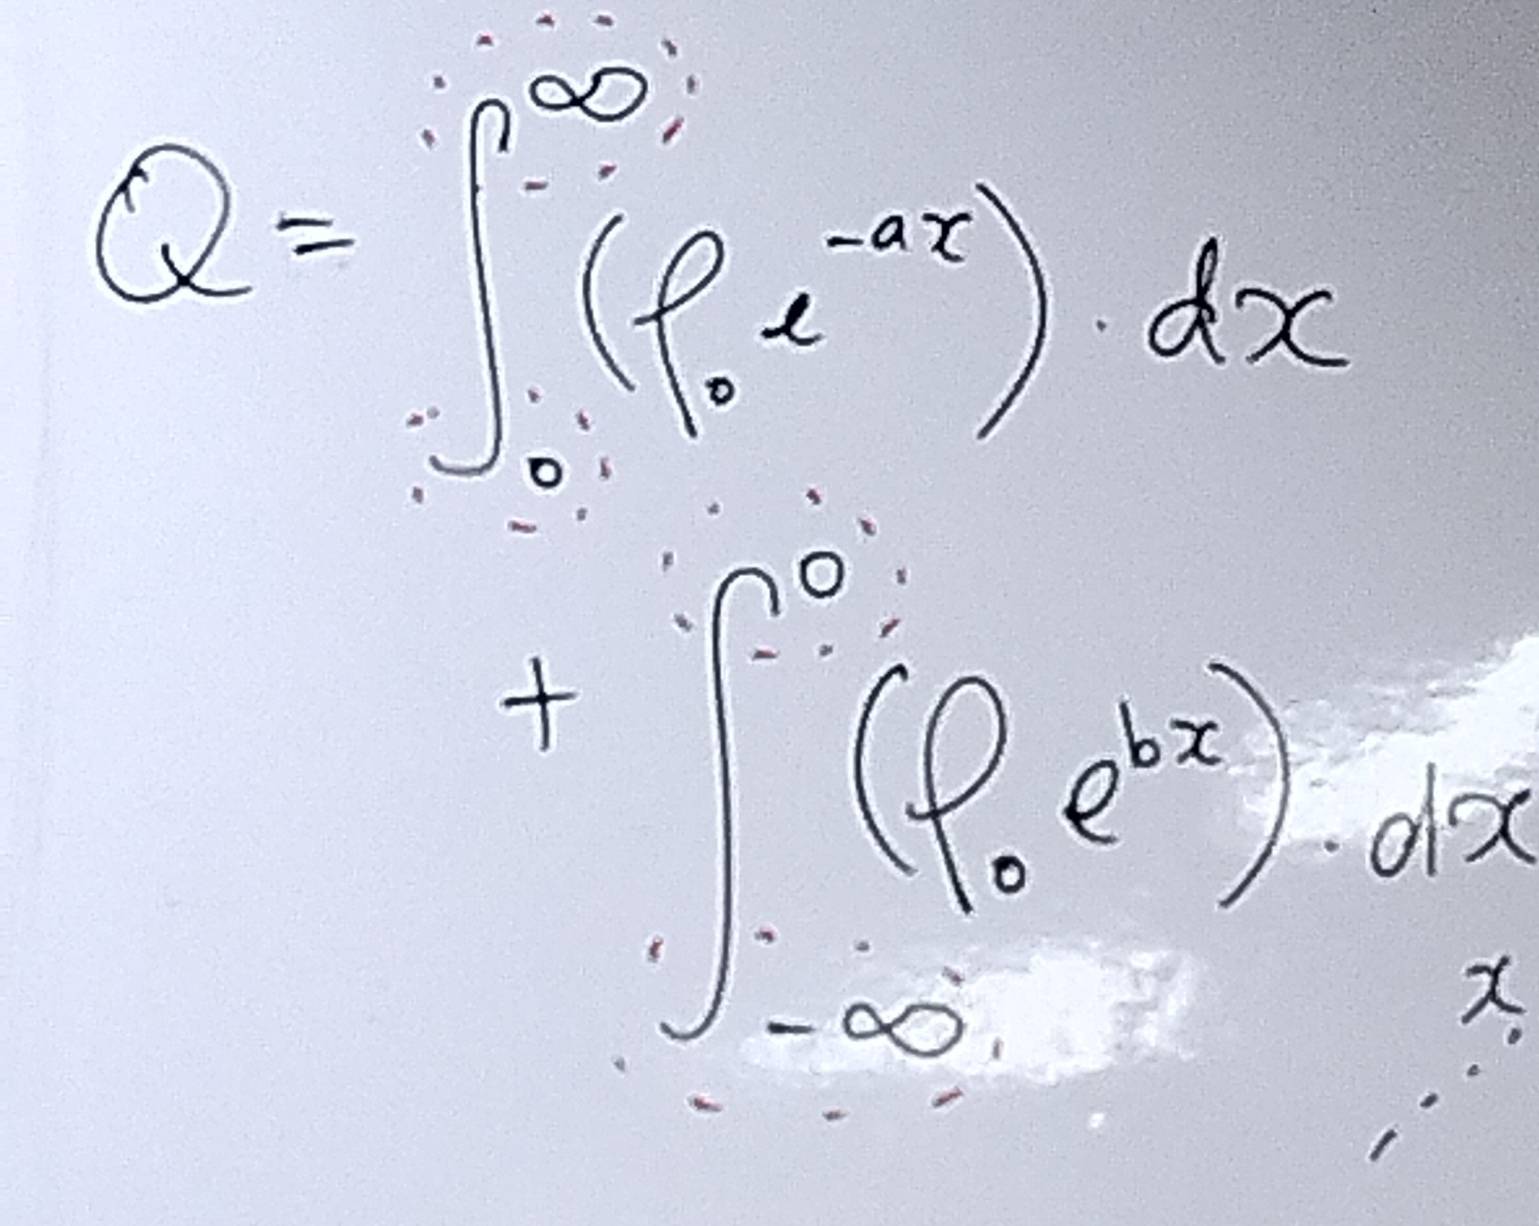 Q = ∫₀^∞ (ρ₀ e^(-ax)) . dx
+ ∫_(-∞)^0 (ρ₀ e^(bx)) . dx
x